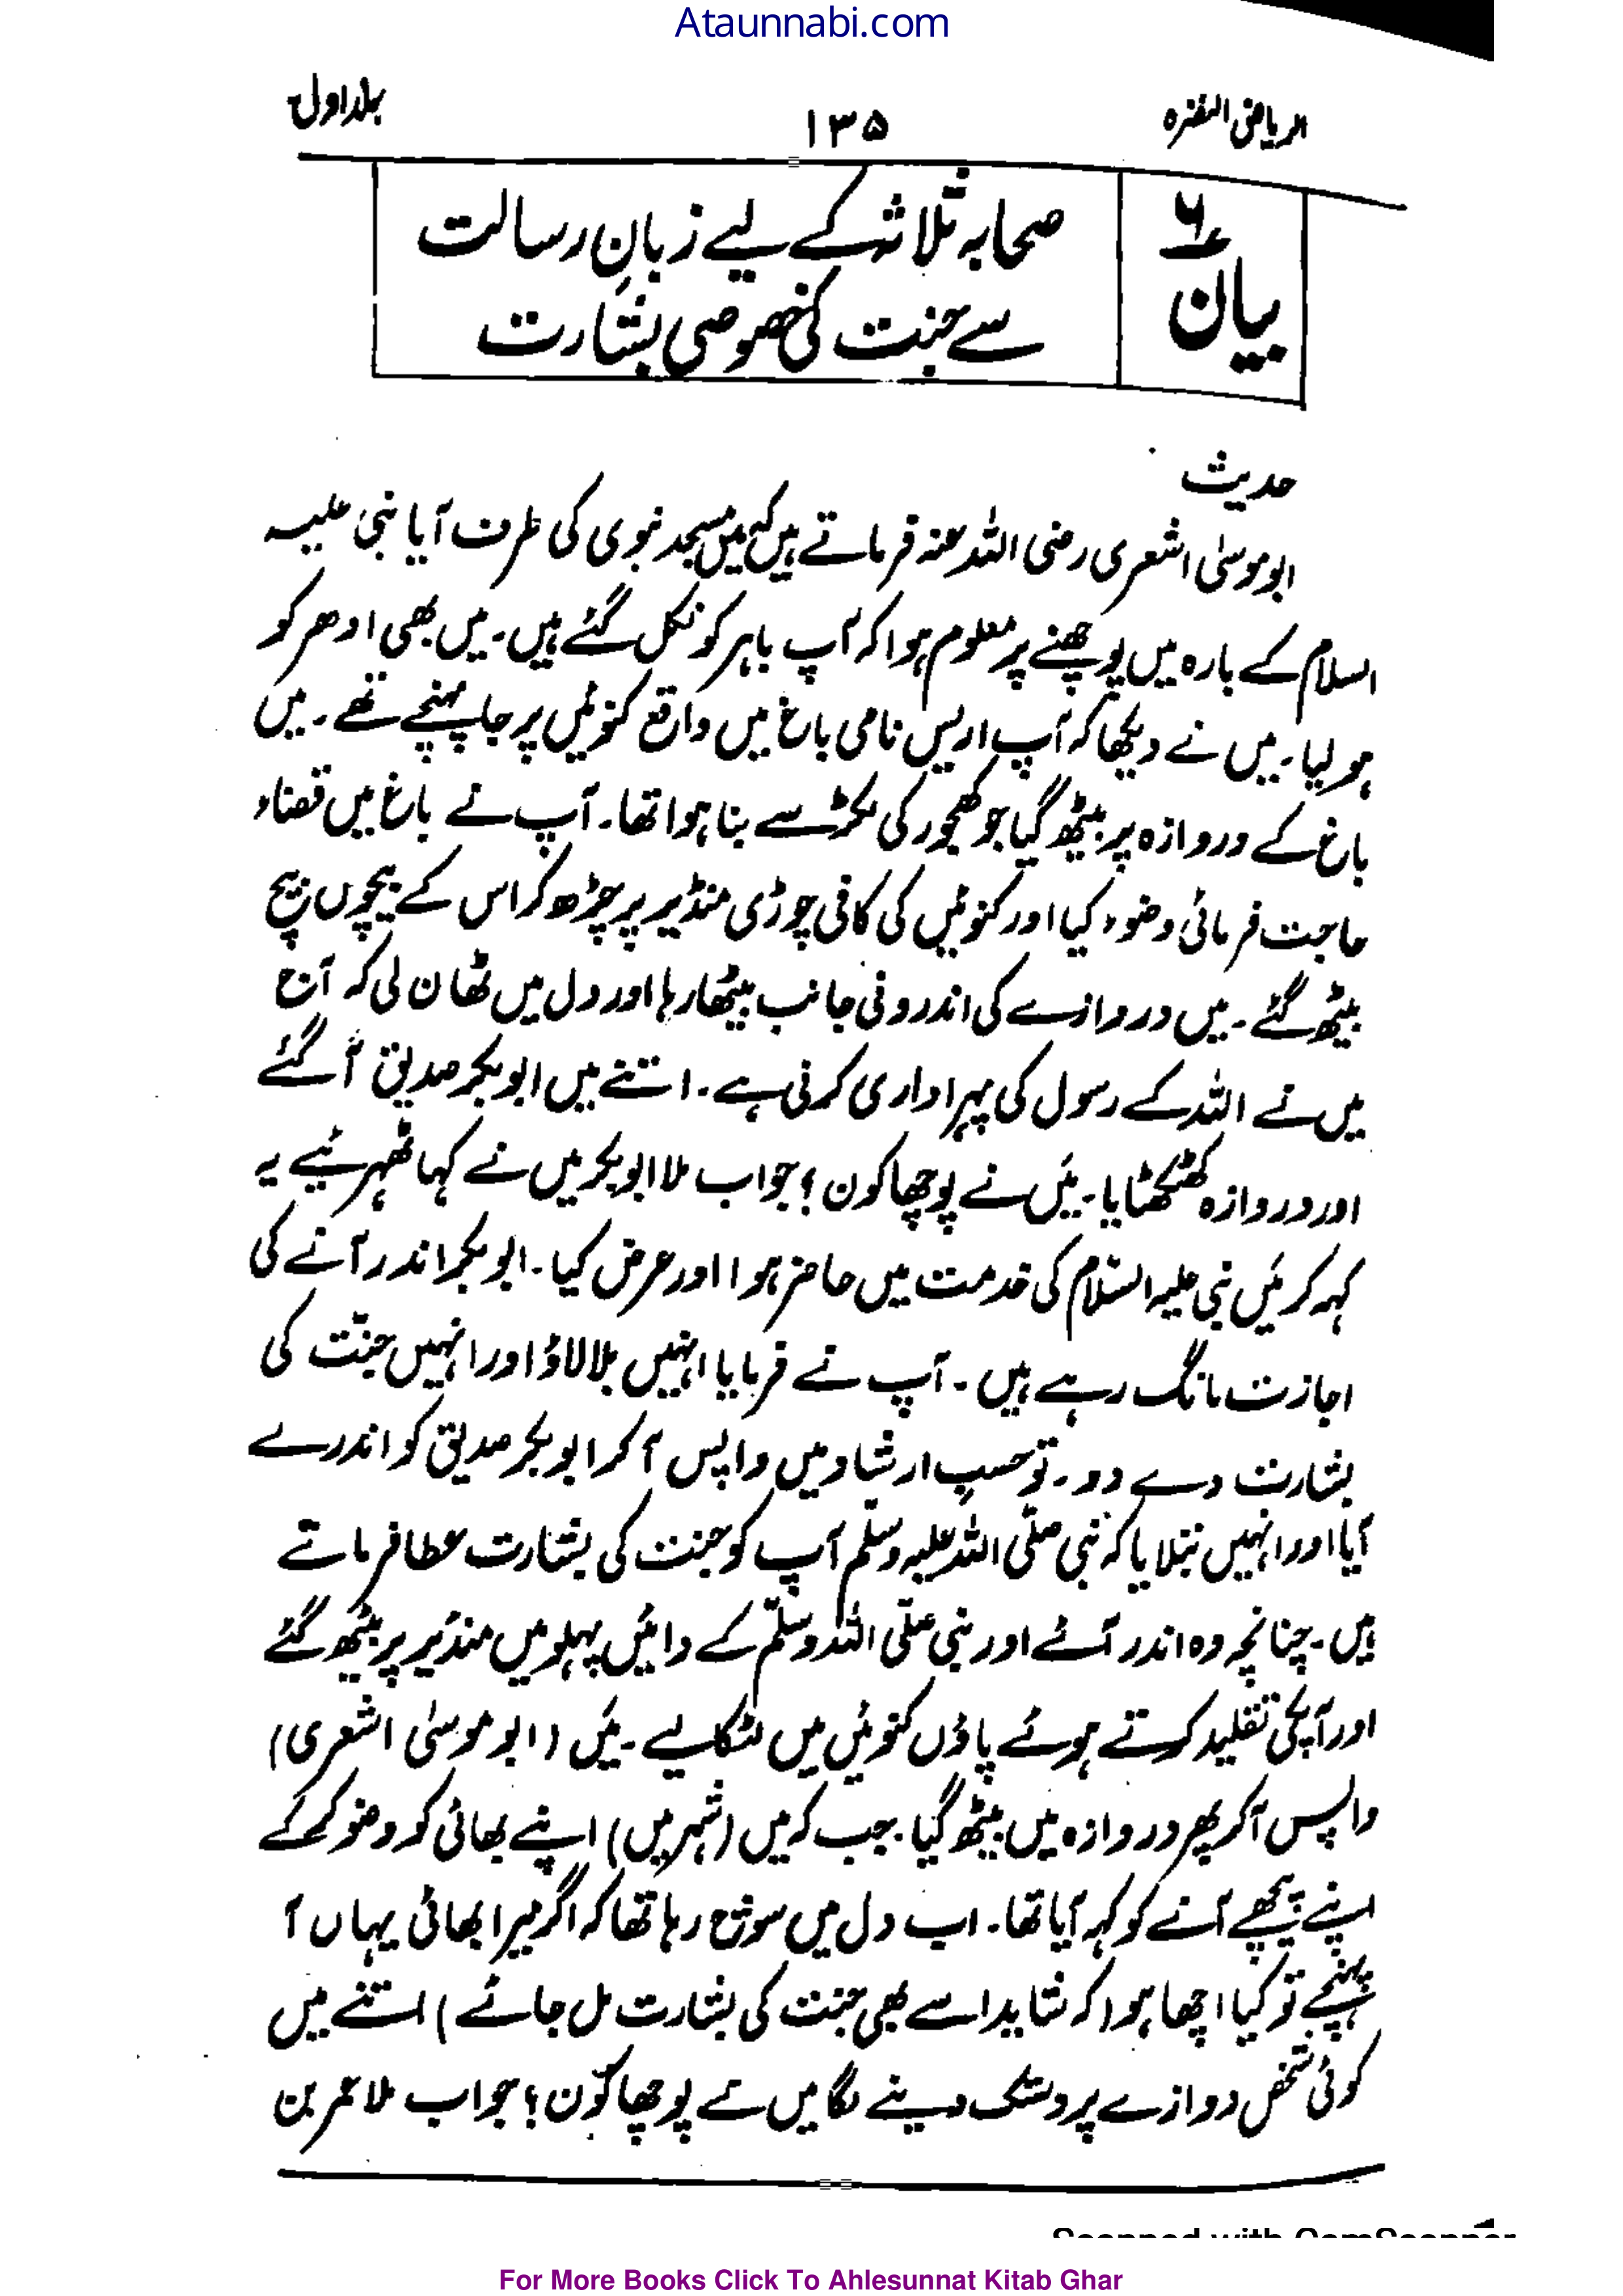 Ataunnabi.com
الریاض النضرہ
۱۳۵
جلد اول
بیان ۶
صحابہ ثلاثہ کے لیے زبانِ رسالت
سے جنت کی خصوصی بشارت
حدیث
ابو موسیٰ اشعری رضی اللہ عنہ فرماتے ہیں کہ میں مسجد نبوی کی طرف آیا نبی علیہ
السلام کے بارہ میں پوچھنے پر معلوم ہوا کہ آپ باہر کو نکل گئے ہیں۔ میں بھی ادھر کو
ہو لیا۔ میں نے دیکھا کہ آپ اریس نامی باغ میں واقع کنوئیں پر جا پہنچے تھے۔ میں
باغ کے دروازہ پر بیٹھ گیا جو کھجور کی لکڑ سے بنا ہوا تھا۔ آپ نے باغ میں قضاء
حاجت فرمائی وضوء کیا اور کنوئیں کی کافی چوڑی منڈیر پر چڑھ کر اس کے بیچوں بیچ
بیٹھ گئے۔ میں دروازے کی اندرونی جانب بیٹھا رہا اور دل میں ٹھان لی کہ آج
میں نے اللہ کے رسول کی پہرا داری کرنی ہے۔ اتنے میں ابوبکر صدیق آ گئے
اور دروازہ کھٹکھٹایا۔ میَں نے پوچھا کون؟ جواب ملا ابوبکر میں نے کہا ٹھہرئیے یہ
کہہ کر میَں نبی علیہ السّلام کی خدمت میں حاضر ہوا اور عرض کیا۔ ابوبکر اندر آنے کی
اجازت مانگ رہے ہیں۔ آپ نے فرمایا انہیں بلا لاؤ اور انہیں جنّت کی
بشارت دے دو۔ تو حسبِ ارشاد میں واپس آ کر ابوبکر صدیق کو اندر لے
آیا اور انہیں بتلایا کہ نبی صلّی اللہ علیہ وسلّم آپ کو جنت کی بشارت عطا فرماتے
ہیں۔ چنانچہ وہ اندر آئے اور نبی صلّی اللہ وسلّم کے دائیں پہلو میں منڈیر پر بیٹھ گئے
اور آپکی تقلید کرتے ہوئے پاؤں کنوئیں میں لٹکا لیے۔ میَں (ابو موسیٰ اشعری)
واپس آ کر پھر دروازہ میں بیٹھ گیا۔ جب کہ میں (شہر میں) اپنے بھائی کو وضو کر کے
اپنے پیچھے آنے کو کہہ آیا تھا۔ اب دل میں سوچ رہا تھا کہ اگر میرا بھائی یہاں آ
پہنچے تو کیا اچھا ہوا کہ شاید اسے بھی جنت کی بشارت مل جائے) اتنے میں
کوئی شخص دوازے پر دستک دینے لگا میں نے پوچھا کون؟ جواب ملا عمر بن
For More Books Click To Ahlesunnat Kitab Ghar